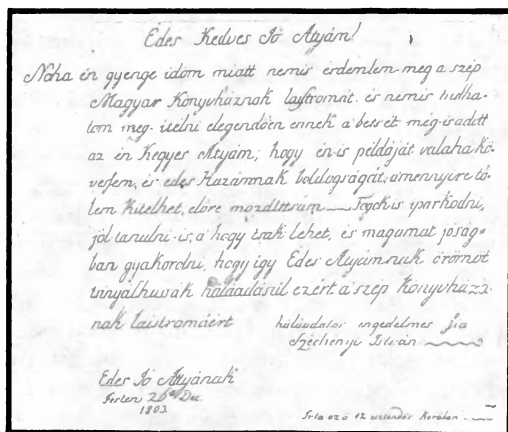 Édes Kedves Jó Atyám!
Noha én gyenge idöm miatt nemis érdemlem-meg a szép
Magyar Könyvháznak laistromát. és nemis tudha-
tom meg-itélni elegendöen ennek a betsét még-is adott
az én Kegyes Atyám; hogy én-is példáját valaha kö-
vessem, és édes Hazámnak boldogságát, amennyire tö-
lem Kitelhet, elöre mozdittsam — Fogok-is iparkodni,
jól tanulni-is, a hogy tsak lehet, és magamat jóság-
ban gyakorolni, hogy igy Édes Atyámnak örömöt
tsinyálhassak háláadásúl ezért a szép Könyvházá-
nak laistromáért
háláadatos engedelmes fia
Széchényi István
Édes Jó Atyának
Pesten 26 Dec.
1803.
Irta ezt 12 esztendös Korában.